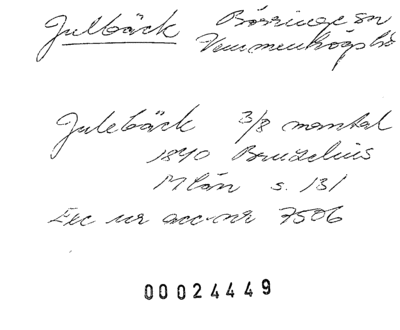 Julbäck Börringe sn
Vemmenhögs hd
Julebäck 3/8 mantal
1840 Bruzelius
Mlån s. 131
Exc ur acc-nr 7506
00024449